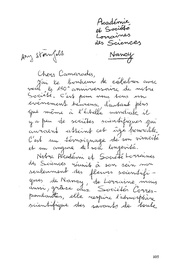 Académie
et Société
Lorraines
des Sciences
Nancy
Ary Sternfeld
Chers Camarades,
J'ai le bonheur de célébrer avec
vous le 150e anniversaire de notre
Société. C'est pour nous tous un
événement heureux, d'autant plus
que même à l'échelle mondiale il
y a peu de sociétés scientifiques qui
auraient atteint cet âge honorable.
C'est un témoignage de son
et un augure de sa longévité.
Notre Académie et Société Lorraines
des Sciences réunit à son sein non
seulement des fleurons scientifi-
ques de Nancy, de Lorraine mais
aussi, grâce aux Sociétés Corres-
pondantes, elle respire l'atmosphère
scientifique des savants de toute